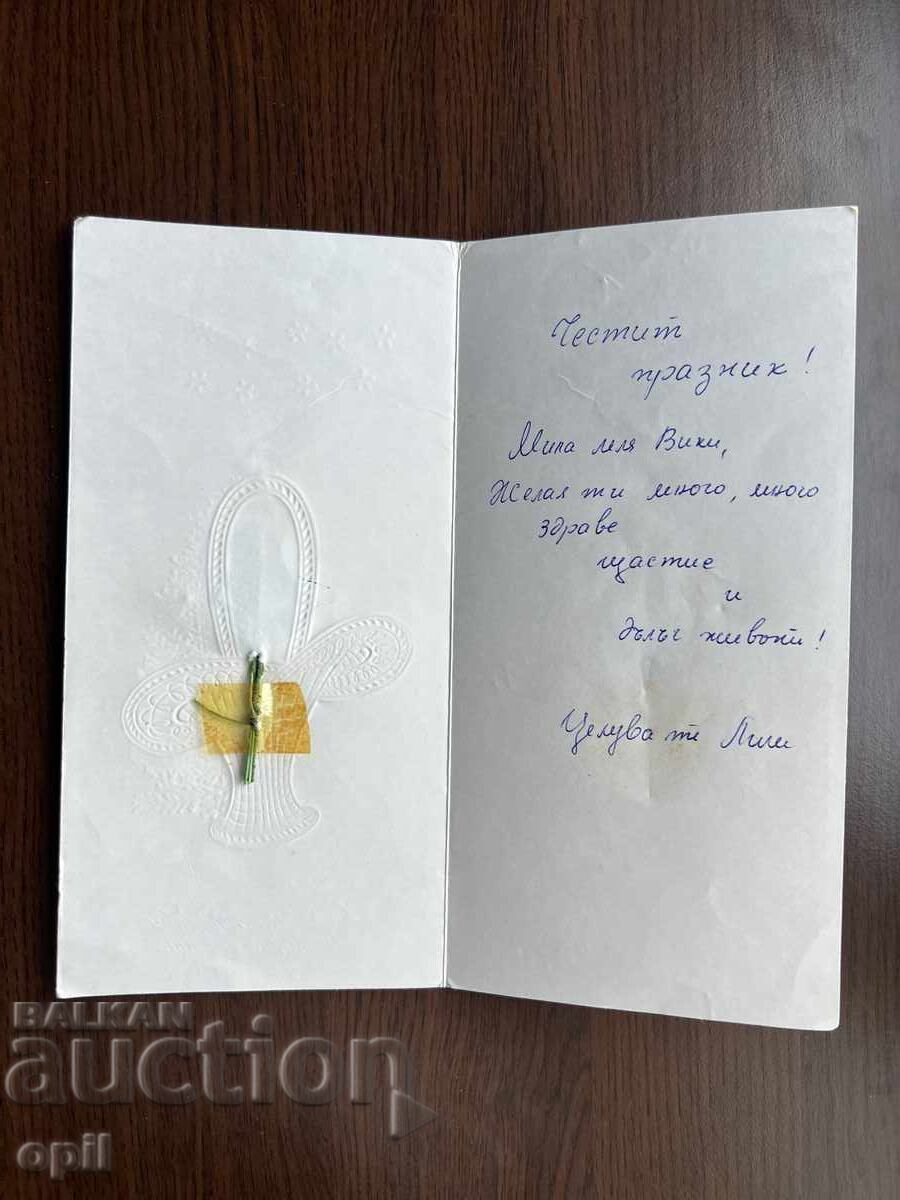 Честит
празник!
Мила леля Вики,
Желая ти много, много
здраве
щастие
и
дълъг живот!
Целува те Лили
BALKAN
auction
opil